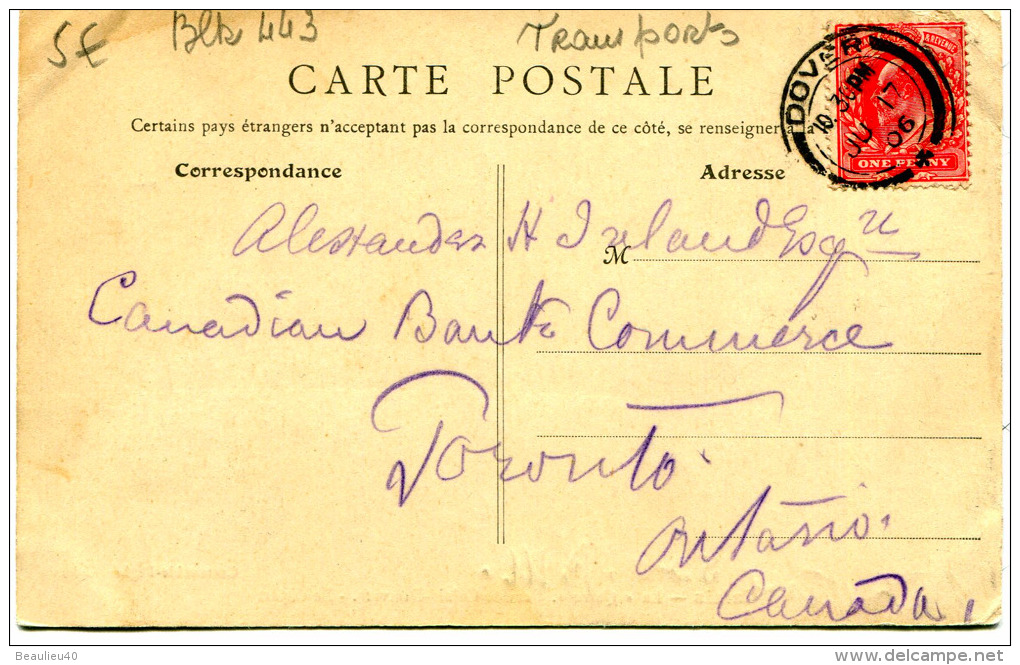 5€ Blk 443 Transports
CARTE POSTALE
Certains pays étrangers n'acceptant pas la correspondance de ce côté, se renseigner à la
Correspondance
Adresse
DOVER
10.30 PM
JU 17
06
& REVENUE
ONE PENNY
Alexander H Ireland Esqre
M
Canadian Bank Commerce
Toronto
Ontario.
Canada,
Beaulieu40
www.delcampe.net